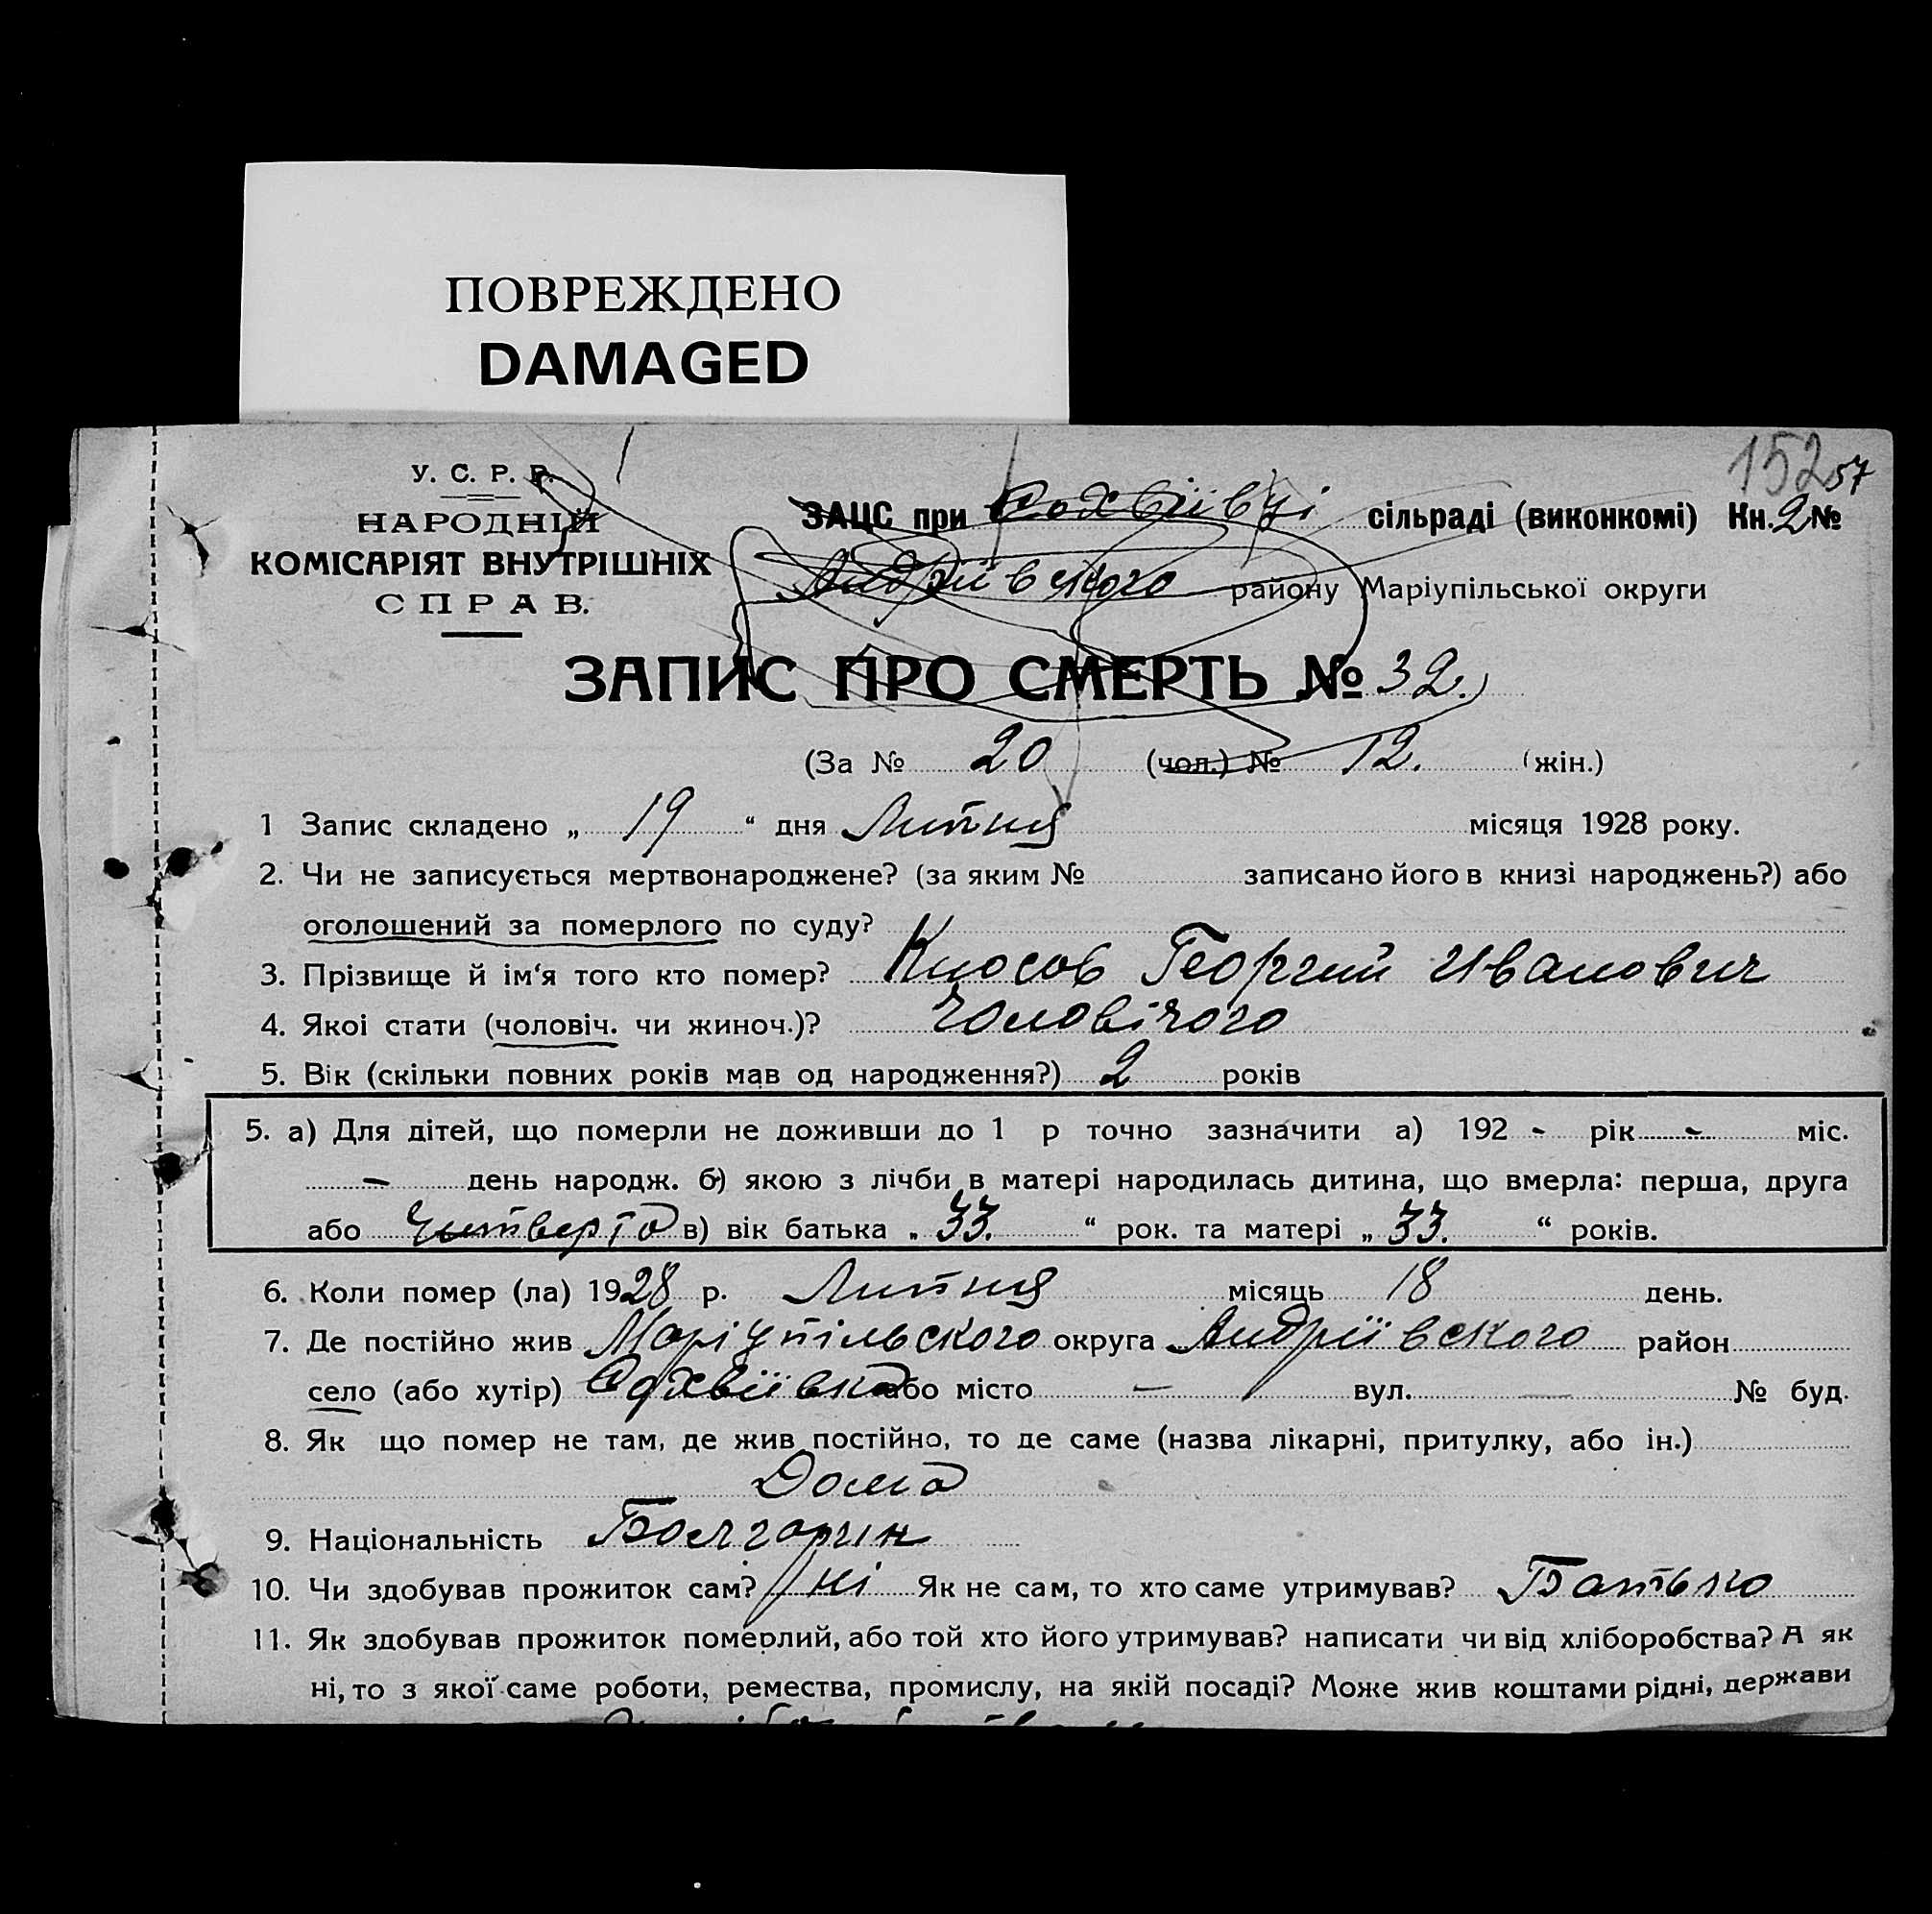 ПОВРЕЖДЕНО
DAMAGED
152 57
У. С. Р. Р.
НАРОДНІЙ
КОМІСАРІЯТ ВНУТРІШНІХ
СПРАВ.
ЗАЦС при Софіївці сільраді (виконкомі) Кн. 2 №
Андріївского району Маріупільської округи
ЗАПИС ПРО СМЕРТЬ № 32.
(За № 20 (чол.) № 12. (жін.)
1 Запис складено „ 19 “ дня Липня місяця 1928 року.
2. Чи не записується мертвонароджене? (за яким № записано його в книзі народжень?) або
оголошений за померлого по суду?
3. Прізвище й ім‘я того кто помер? Кюсов Георгий Иванович
4. Якоі стати (чоловіч. чи жиноч.)? Чоловічого
5. Вік (скільки повних років мав од народження?) 2 років
5. а) Для дітей, що померли не доживши до 1 р точно зазначити а) 192 - рік - міс.
- день народж. б) якою з лічби в матері народилась дитина, що вмерла: перша, друга
або Читверта в) вік батька „ 33. “ рок. та матері „ 33. “ років.
6. Коли помер (ла) 1928 р. Липня місяць 18 день.
7. Де постійно жив Маріупільского округа Андріївского район
село (або хутір) або місто — вул. — № буд.
8. Як що помер не там, де жив постійно, то де саме (назва лікарні, притулку, або ін.)
Дома
9. Національність Болгарін
10. Чи здобував прожиток сам? ні Як не сам, то хто саме утримував? Батько
11. Як здобував прожиток померлий, або той хто його утримував? написати чи від хліборобства? А як
ні, то з якої саме роботи, ремества, промислу, на якій посаді? Може жив коштами рідні, держави